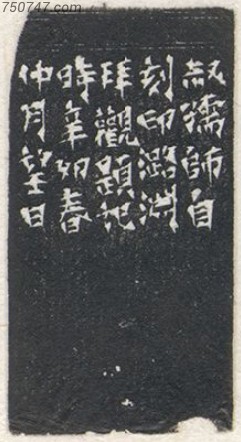 750747.com
叔孺師自
刻印潞渊
拜觀題記
時辛卯春
仲月望日